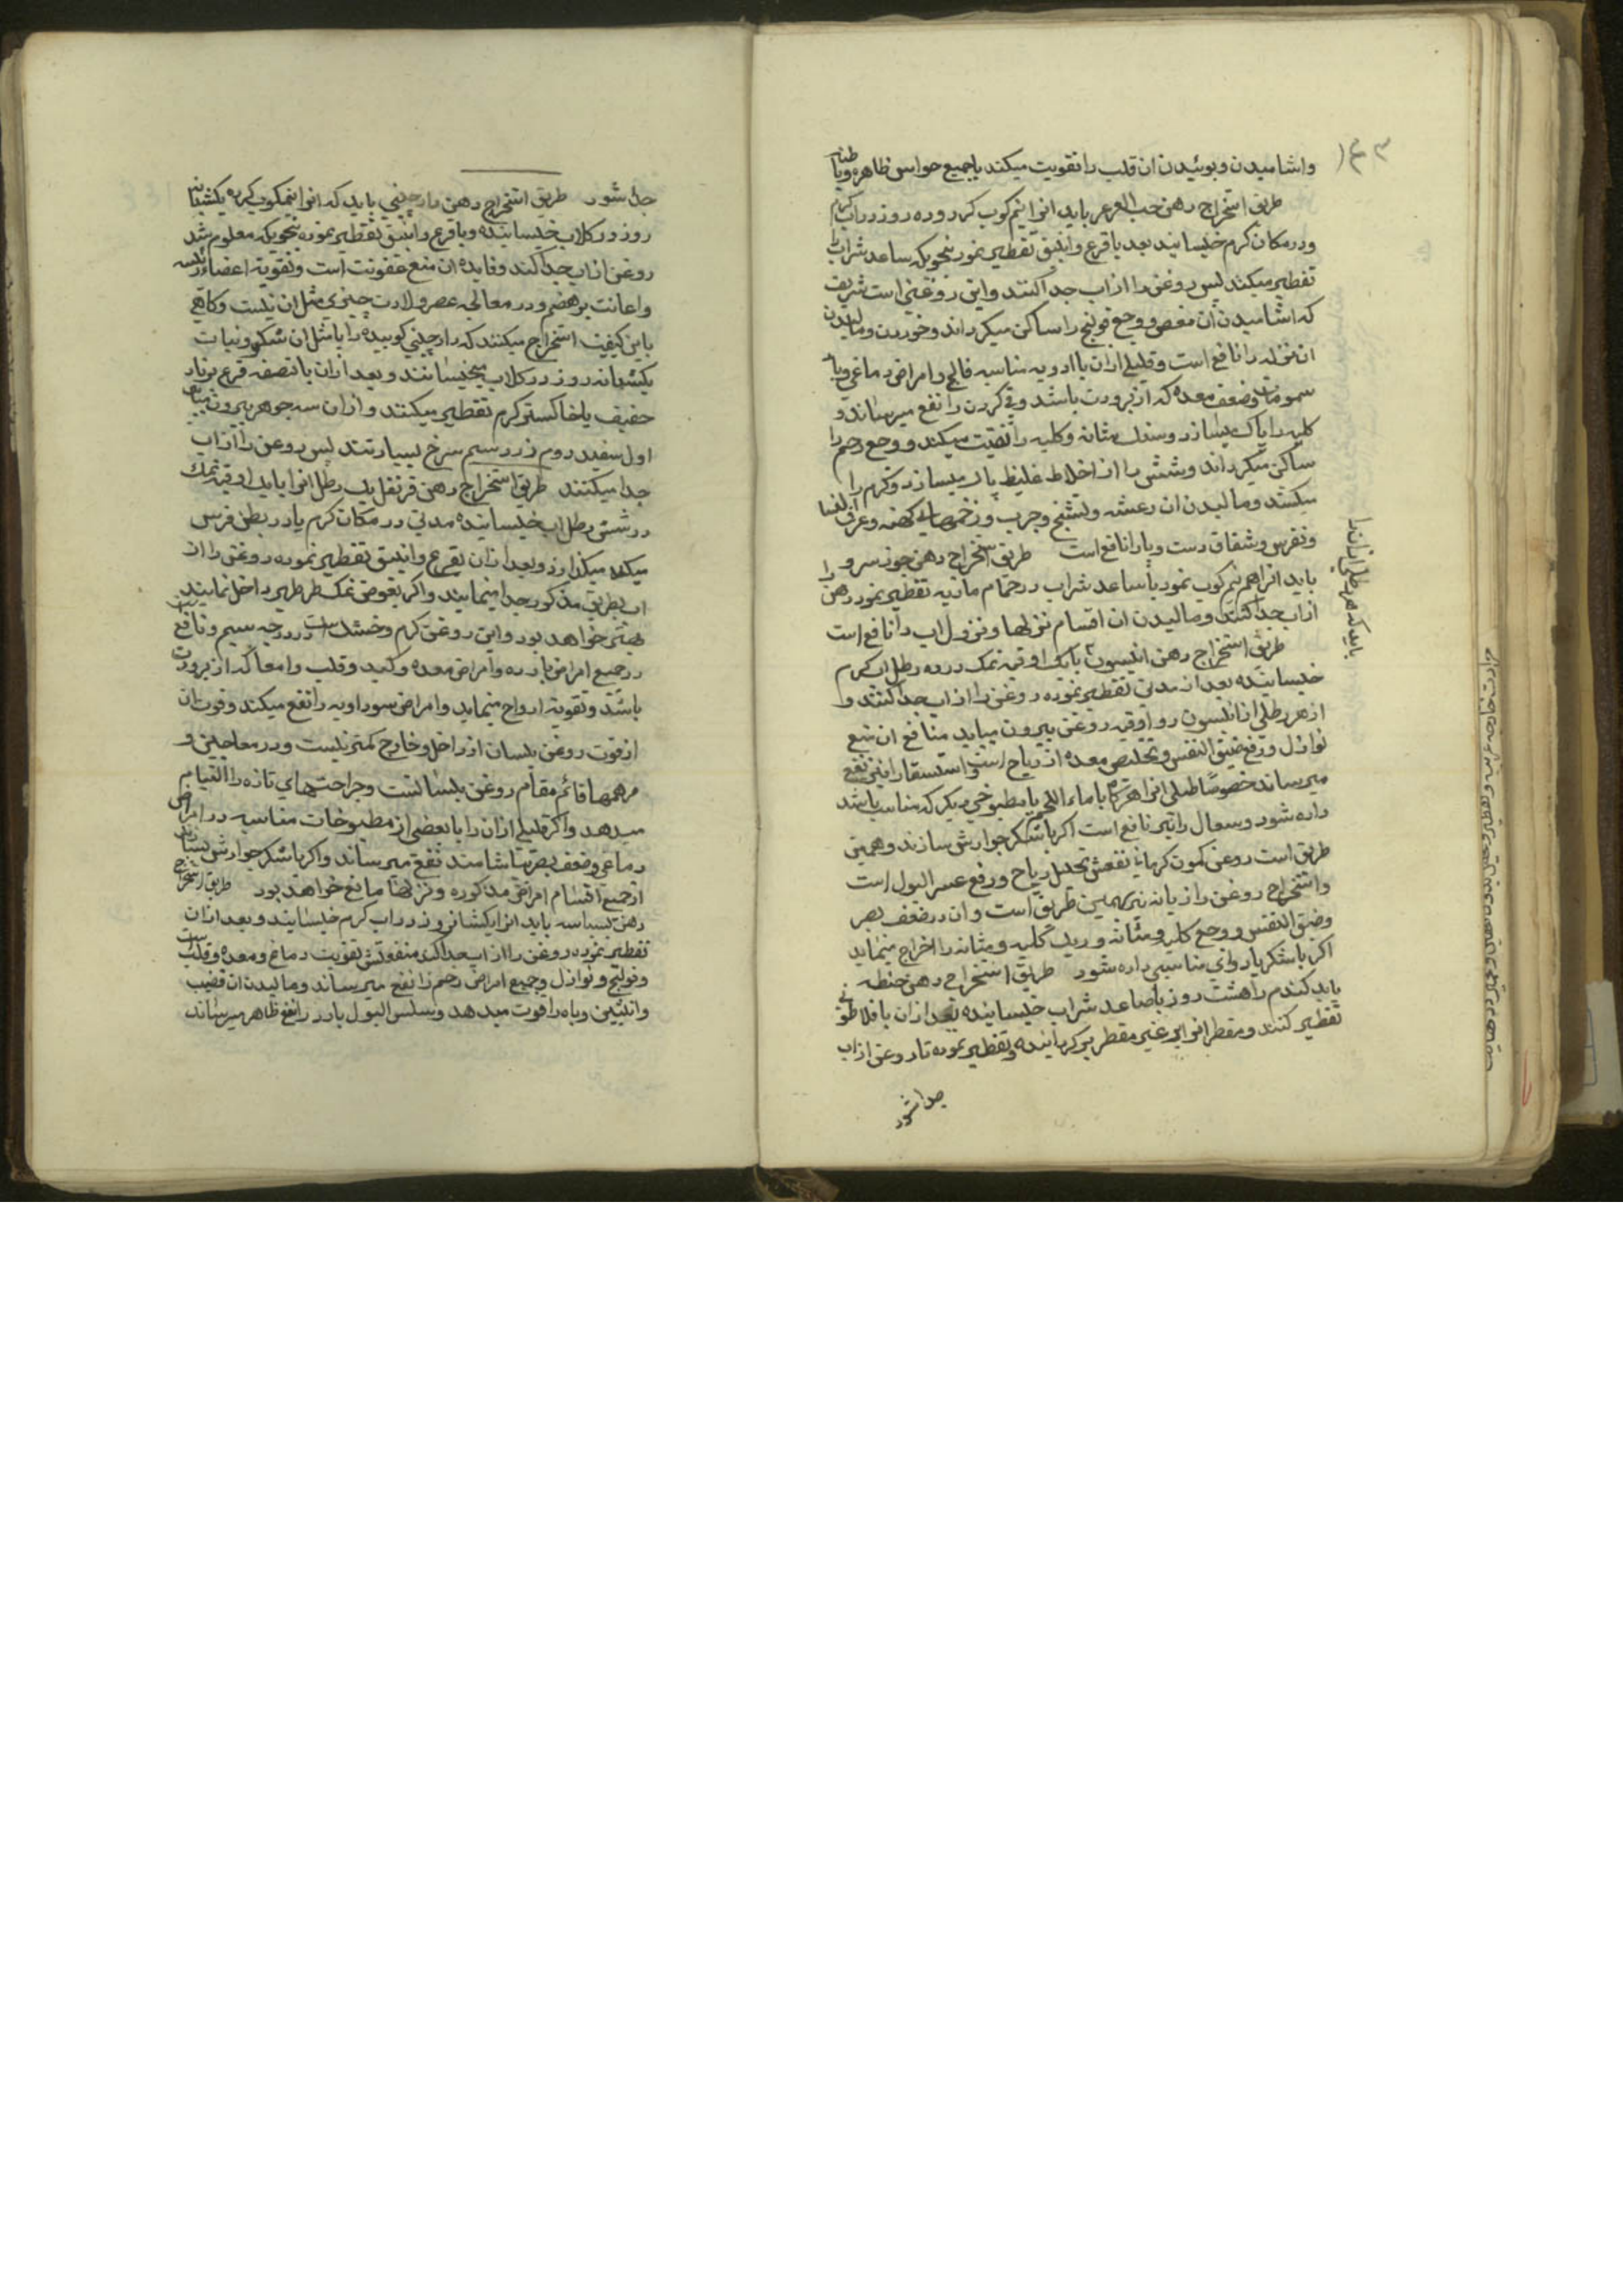 واشامیدن و بوئیدن ان قلب را تقویت میکند با جمیع حواس ظاهره و باطنه
طریق استخراج دهن حب العرعر باید انرا نیم کوب کرد و ده روز در اب کرم
و در مکان کرم خیسانید بعد با قرع و انبیق تقطیر نمود بنحویکه ساعد شراب را
تقطیر میکنند پس روغن را از اب جدا کنند و این روغنی است شریف
که اشامیدن ان مغص و وجع قولنج را ساکن میکرداند و خوردن و مالیدن
ان نزله را نافع است و قلیلی از ان با ادویه مناسبه فالج و امراض دماغی و با
سمومات و ضعف معده که از برودت باشد و قی کردن را نفع میرساند و
کلیه را پاک میسازد و سنک مثانه و کلیه را تفتیت میکند و وجع رحم را
ساکن میکرداند و شش را از اخلاط غلیظ پاک میسازد و کرم را
میکشد و مالیدن ان رعشه و تشنج و جرب و زخمهای کهنه و عرق النسا
و نقرس و شقاق دست و پا را نافع است طریق استخراج دهن جوز سرو
باید انرا هم نیم کوب نمود با ساعد شراب در حمام مائیه تقطیر نمود دهن را
از اب جدا کنند و مالیدن ان اقسام نزلها و نزول اب را نافع است
طریق استخراج دهن انیسون با یک اوقیه نمک در ده رطل اب کرم
خیسانیده بعد از مدتی تقطیر نموده روغن را از اب جدا کنند و
از هر رطلی از انیسون دو اوقیه روغن بیرون میاید منافع ان منع
نوازل و رفع ضیق النفس و تخلیص معده از ریاح است و استسقا را نیز نفع
میرساند خصوصا طبلی انرا هرکاه با ماء اللحم یا مطبوخی دیکر که مناسب باشد
داده شود و سعال را نیز نافع است اکر با شکر جوارش سازند و همین
طریق است روغن کمون کرمانی نفعش تحلیل ریاح و رفع عسر البول است
و استخراج روغن رازیانه نیز بهمین طریق است و ان در ضعف بصر
و ضیق النفس و وجع کلیه و مثانه و ریک کلیه و مثانه را اخراج مینماید
اکر با شکر یا دوای مناسبی داده شود طریق استخراج دهن حنطه
باید کندم را هشت روز با صاعد شراب خیسانیده بعد از ان با فلاطونی
تقطیر کنند و مقطر انرا بر غیر مقطر بر کردانیده و تقطیر نموده تا روغن از اب
جدا شود
باید که هر رطلی از انرا
جدا شود طریق استخراج دهن دارچینی باید که انرا نیمکوب کرده یکشبانه
روز در کلاب خیسانیده و با قرع و انبیق تقطیر نموده بنحویکه معلوم شد
روغن از اب جدا کند و فایده ان منع عفونت است و تقویة اعضاء رئیسه
و اعانت بر هضم و در معالجه عصر ولادت چیزی مثل ان نیست و کاهی
باین کیفیت استخراج میکنند که دارچینی کوبیده را با مثل ان شکر و نبات
یکشبانه روز در کلاب میخیسانند و بعد از ان با تصفه قرع بر نار
خفیف یا خاکستر کرم تقطیر میکنند و از ان سه جوهر بیرون میاید
اول سفید دوم زرد سیم سرخ بسیار تند پس روغن را از اب
جدا میکنند طریق استخراج دهن قرنفل یک رطل انرا با یک اوقیه نمک
در شش رطل اب خیسانیده مدتی در مکان کرم یا در بطن فرس
میکذارند و بعد از ان بقرع و انبیق تقطیر نموده روغن را از
اب بطریق مذکور جدا مینمایند و اکر بعوض نمک طرطیر داخل نمایند
بهتر خواهد بود و این روغن کرم و خشک است در درجه سیم و نافع است
در جمیع امراض بارده و امراض معده و کبد و قلب و امعا که از برودت
باشد و تقویة ارواح مینماید و امراض سوداویه را نفع میکند و قوت ان
از قوت روغن بلسان از داخل و خارج کمتر نیست و در معاجین و
مرهمها قائم مقام روغن بلسانست و جراحتهای تازه را التیام
میدهد و اکر قلیلی از ان را با بعضی از مطبوخات مناسبه در امراض
دماغی و ضعف بصر بیاشامند نفع میرساند و اکر با شکر جوارش بسازند
از جمیع اقسام امراض مذکوره و نزلها مانع خواهد بود طریق استخراج
دهن بسباسه باید انرا یکشبانروز در اب کرم خیسانید و بعد از ان
تقطیر نموده روغن را از اب جدا کند منفعتش تقویت دماغ و معده و قلب است
و قولنج و نوازل و جمیع امراض رحم را نفع میرساند و مالیدن ان قضیب
و انثیین و باه را قوت میدهد و سلس البول بارد را نفع ظاهر میرساند